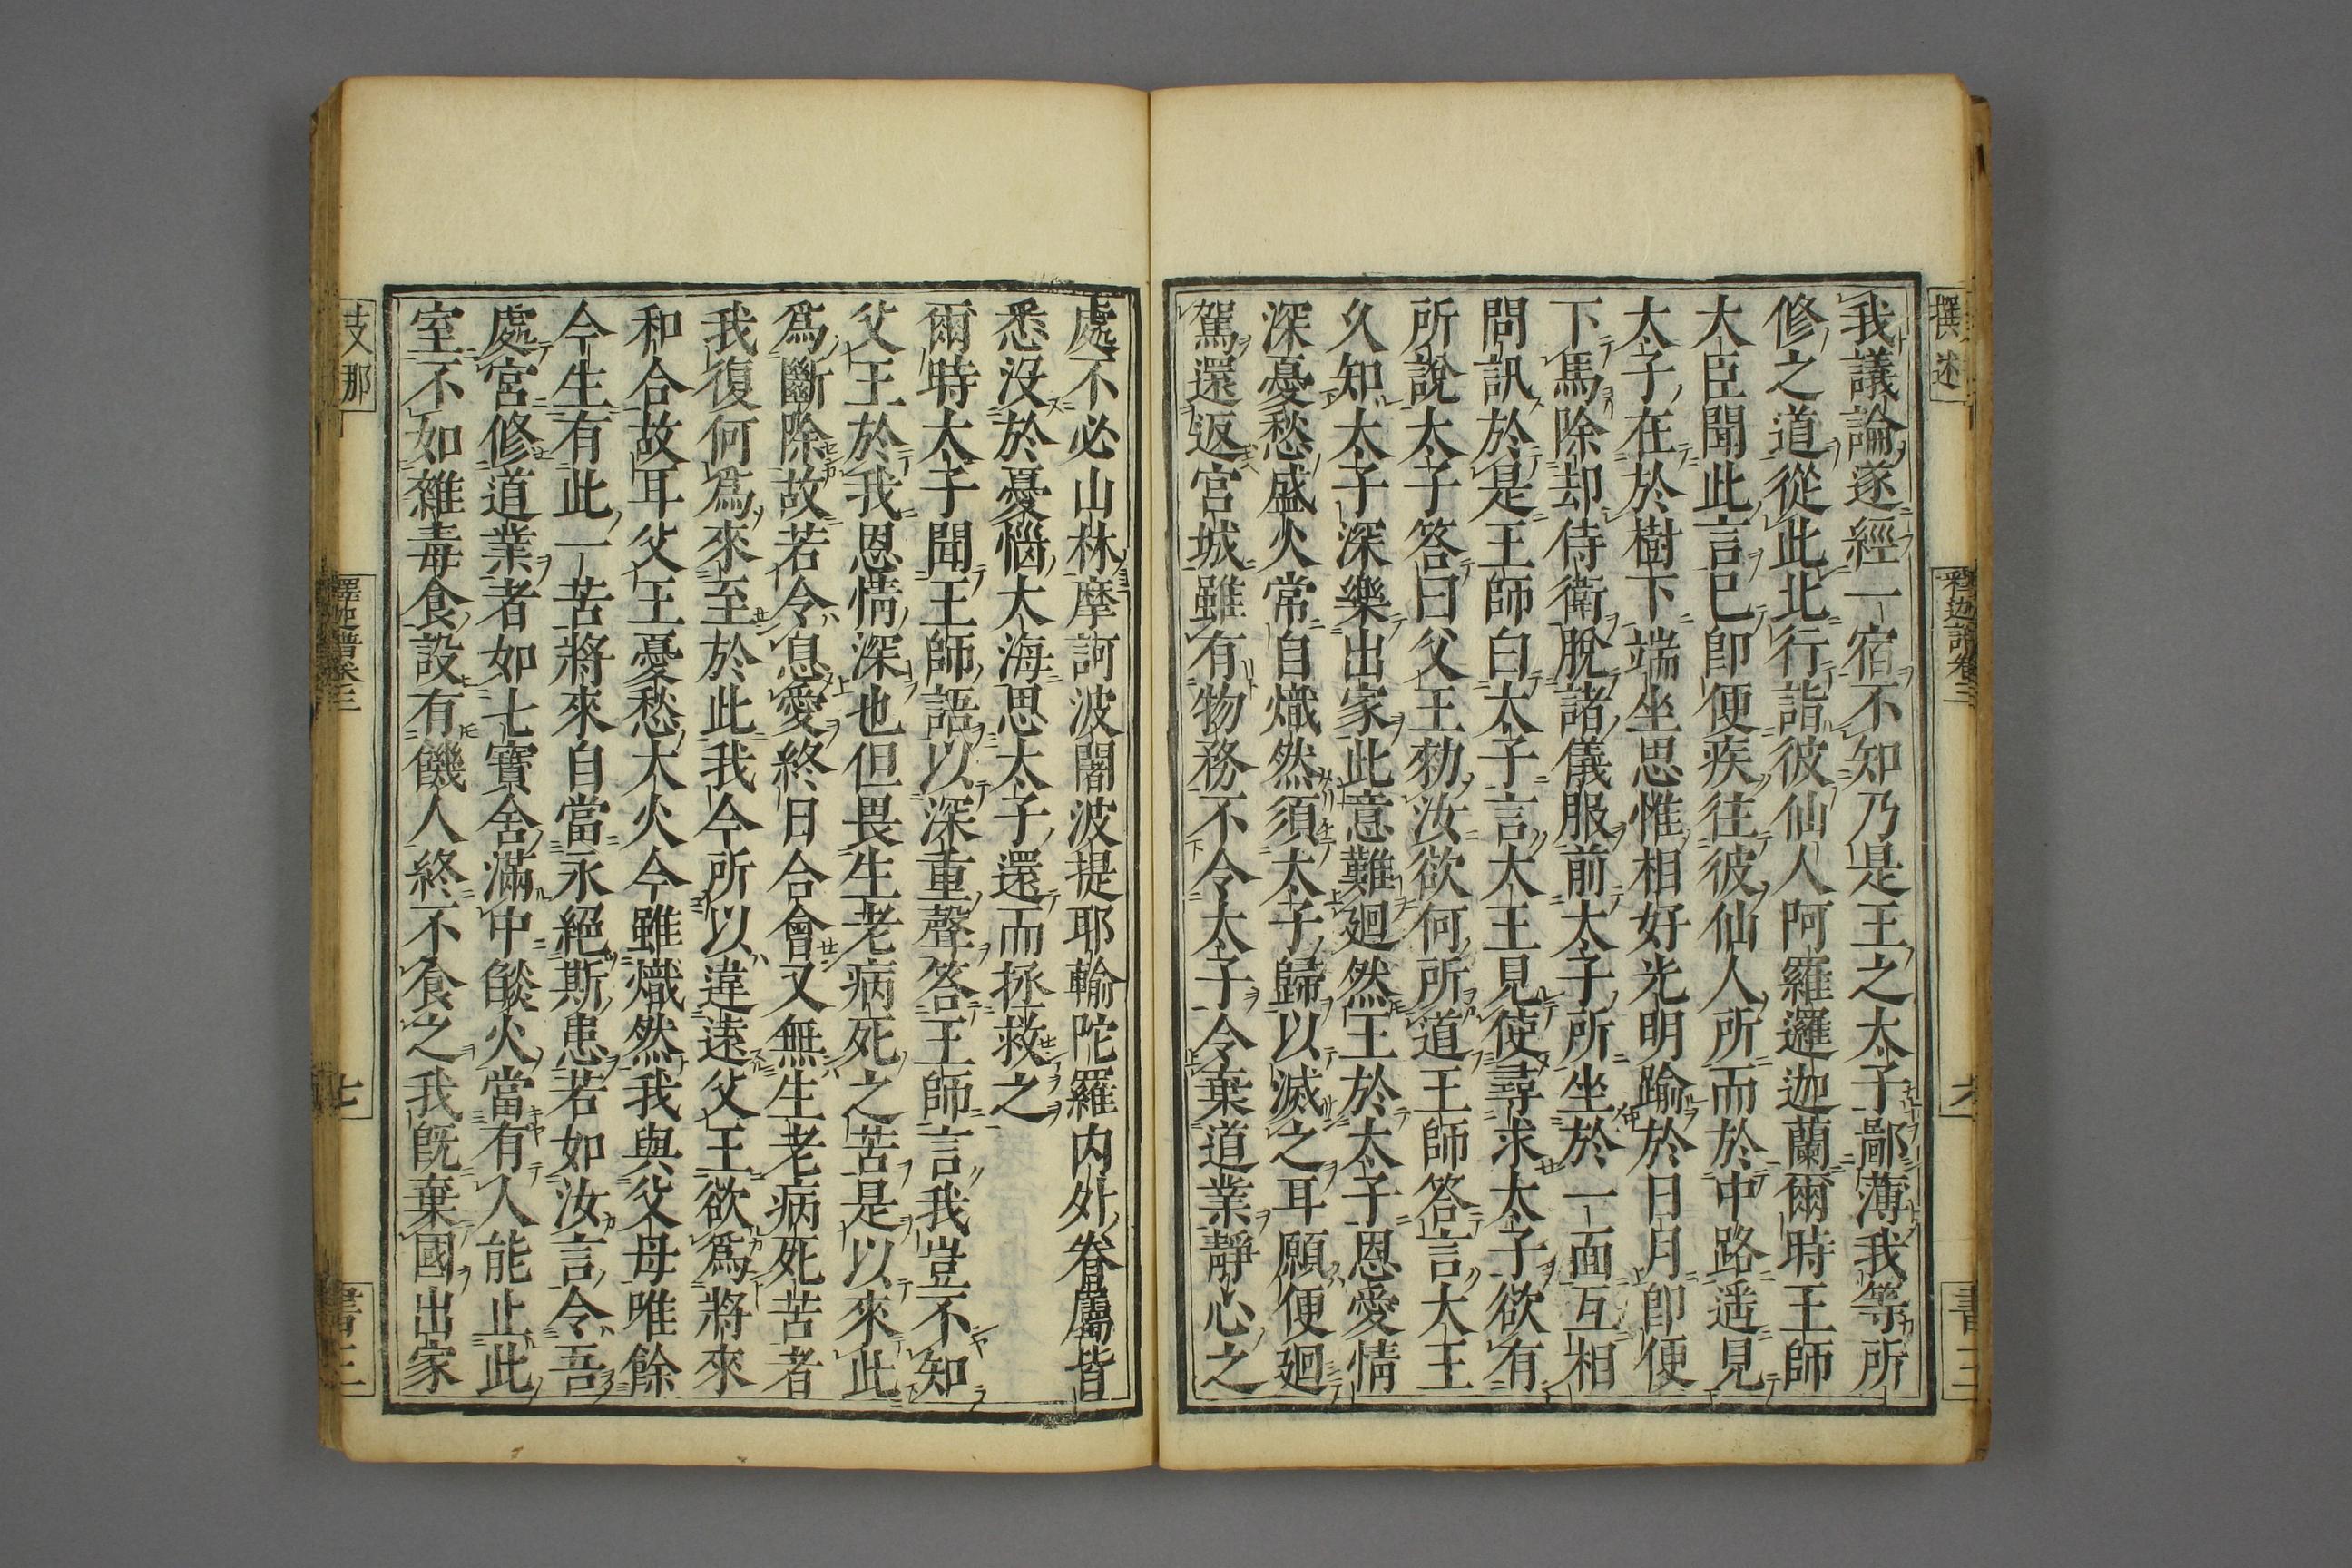 撰述
釋迦譜卷三
書三
我議論遂經一宿不知乃是王之太子鄙薄我等所
修之道從此北行詣彼仙人阿羅邏迦蘭爾時王師
大臣聞此言已卽便疾往彼仙人所而於中路遥見
太子在於樹下端坐思惟相好光明踰於日月卽便
下馬除却侍衛脫諸儀服前太子所坐於一面互相
問訊於是王師白太子言大王見使尋求太子欲有
所說太子答曰父王勑汝欲何所道王師答言大王
久知太子深樂出家此意難廻然王於太子恩愛情
深憂愁盛火常自熾然須太子歸以滅之耳願便廻
駕還返宮城雖有物務不令太子令棄道業靜心之
處不必山林摩訶波闍波提耶輸陀羅内外眷屬皆
悉没於憂惱大海思太子還而拯救之
爾時太子聞王師語以深重聲答王師言我豈不知
父王於我恩情深也但畏生老病死之苦是以來此
爲斷除故若令息愛終日合會又無生老病死苦者
我復何爲來至於此我今所以違遠父王欲爲將來
和合故耳父王憂愁大火今雖熾然我與父母唯餘
今生有此一苦將來自當永絕斯患若如汝言令吾
處宮修道業者如七寶舍滿中燄火當有人能止此
室不如雜毒食設有饑人終不食之我旣棄國出家
支那
釋迦譜卷三
七
書三